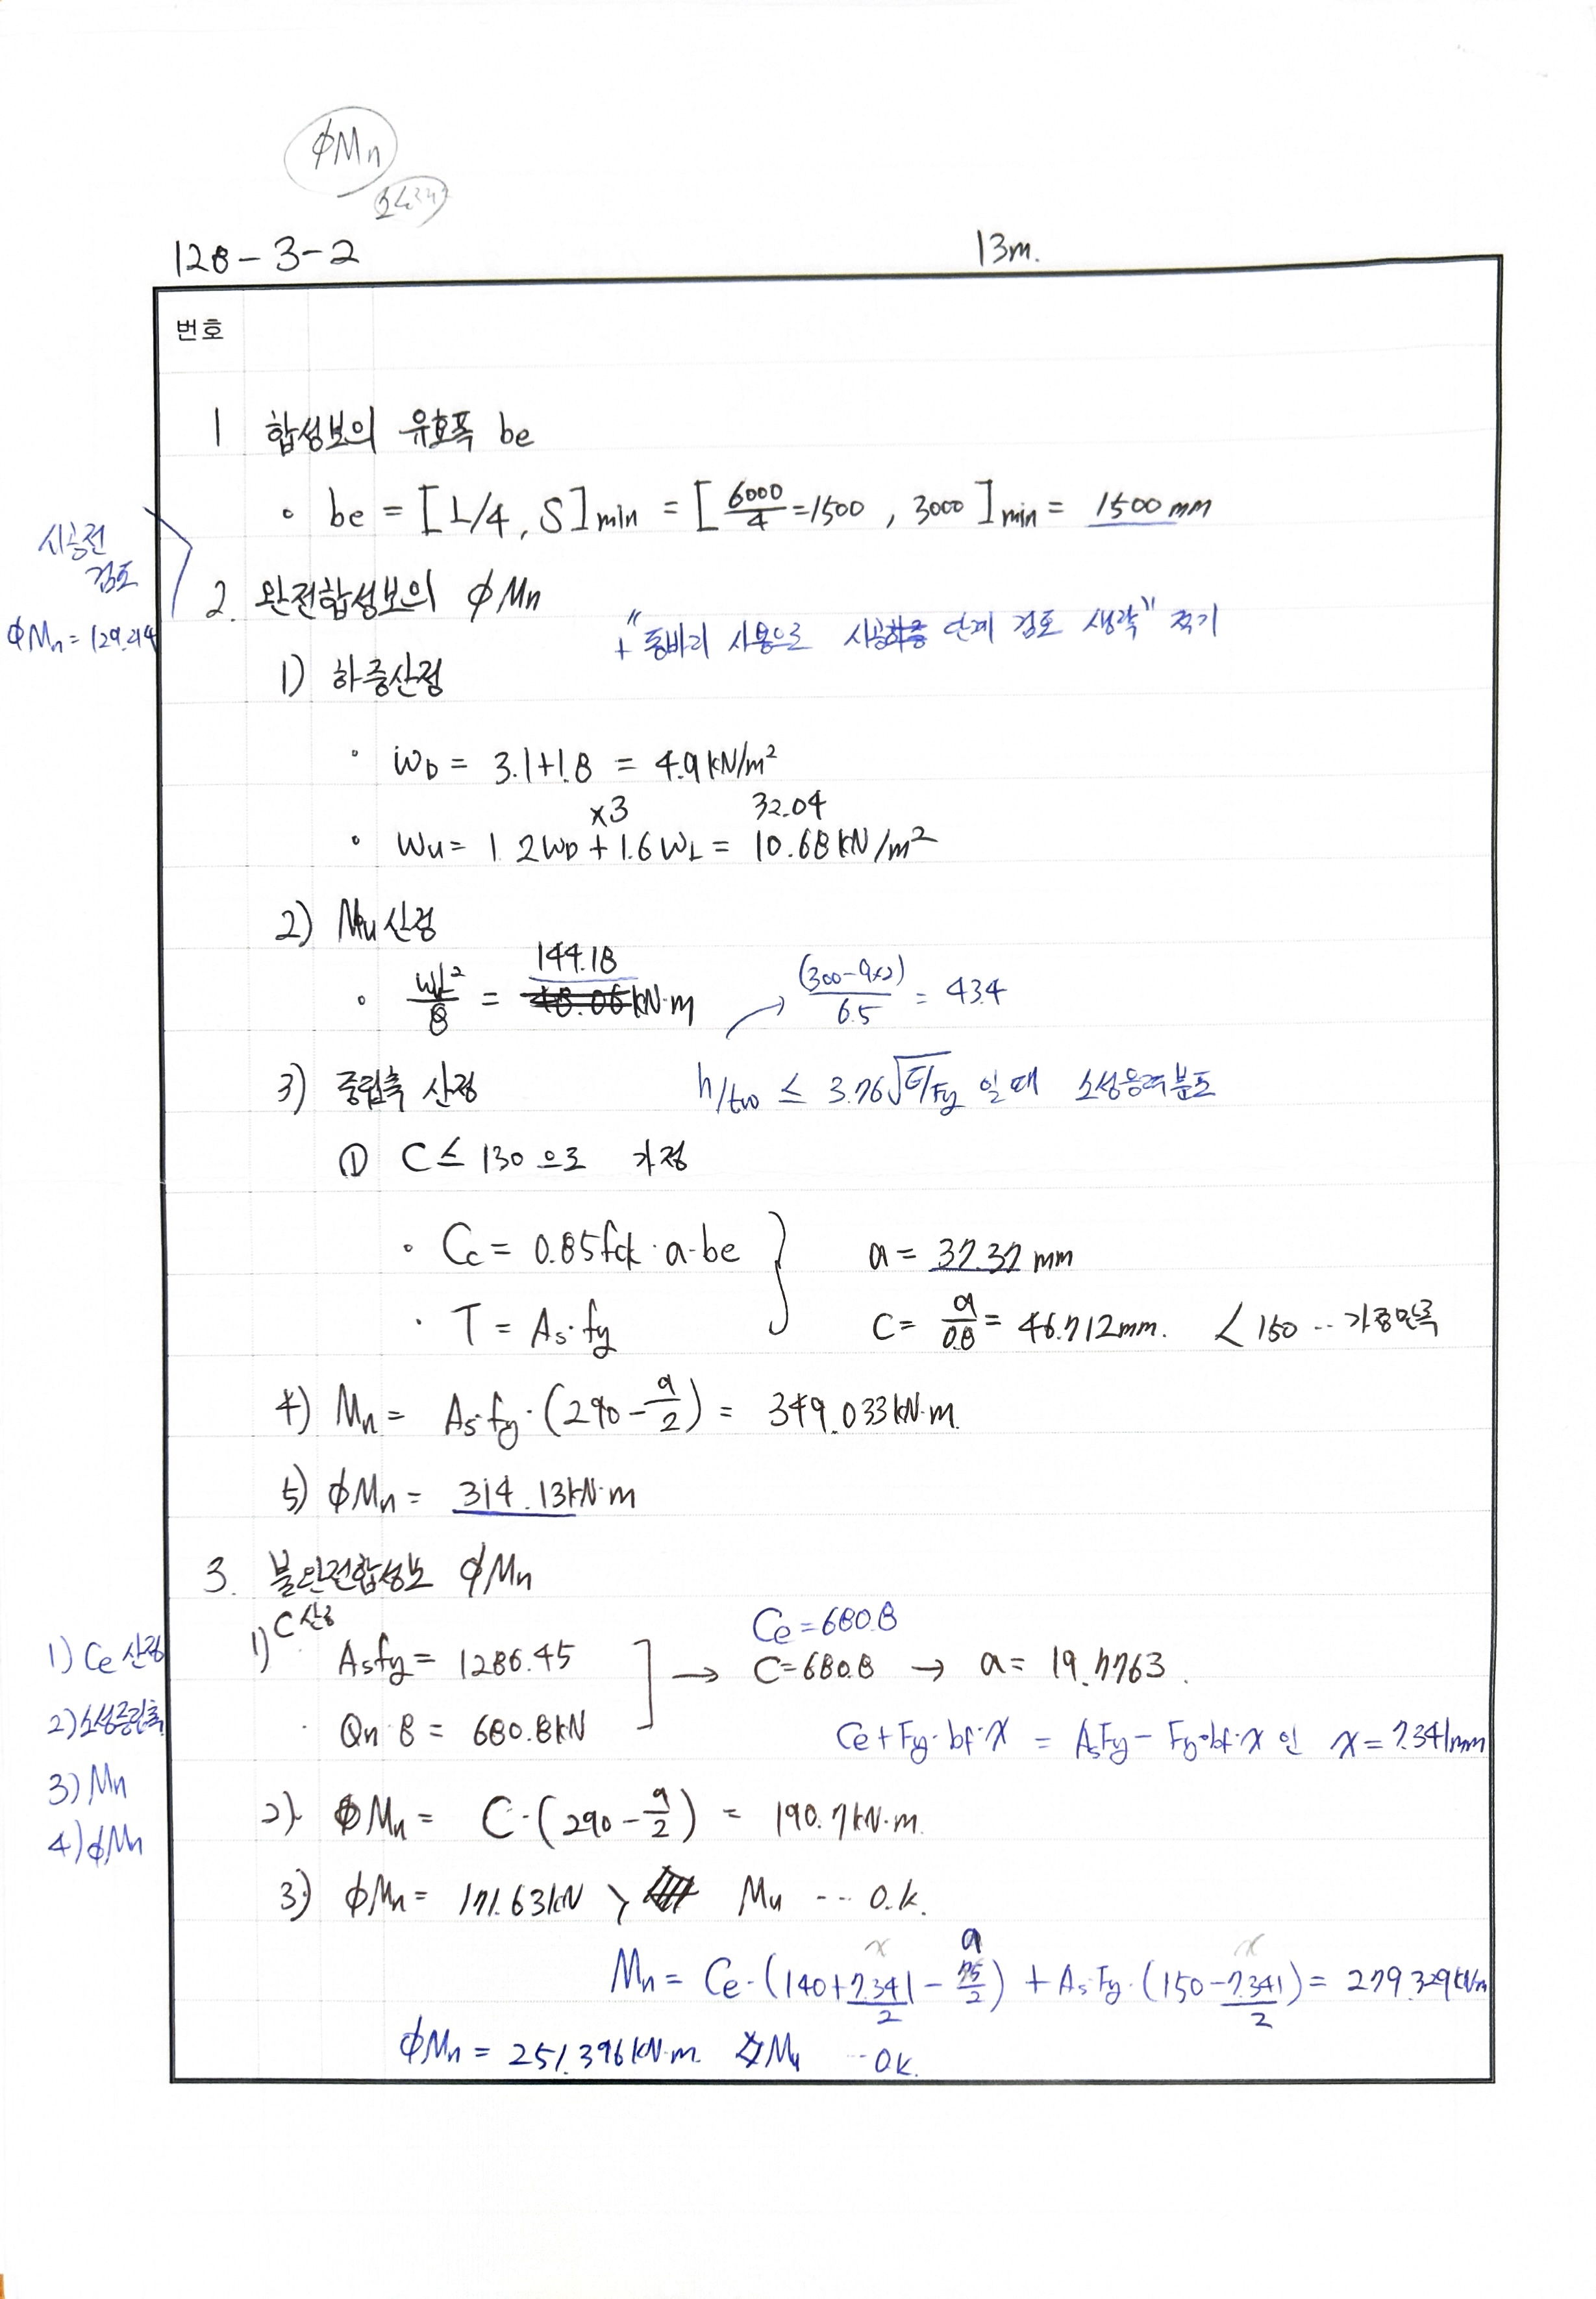 ϕMn
128-3-2
13m.
번호
1 합성보의 유효폭 be
∘ be = [L/4, S]min = [6000/4=1500, 3000]min = 1500mm
시공전
검토
ϕMn=129.214
2. 완전합성보의 ϕMn
+ "동바리 사용으로 시공 단계 검토 생략" 적기
1) 하중산정
∘ WD = 3.1+1.8 = 4.9kN/m²
×3 32.04
∘ Wu = 1.2WD + 1.6WL = 10.68kN/m²
2) Mu 산정
144.18
∘ wL²/8 = 48.06kN·m
(300-9×2)/6.5 = 43.4
3) 중립축 산정
h/tw ≤ 3.76√E/Fy 일때 소성응력분포
① C ≤ 130으로 가정
∘ Cc = 0.85fck·a·be
a = 37.37mm
· T = As·fy
C = a/0.8 = 46.712mm. < 150 ·· 가정만족
4) Mn = As·fy·(290-a/2) = 349.033kN·m.
5) ϕMn = 314.13kN·m
3. 불완전합성보 ϕMn
1) C 산정
Asfy = 1286.45
Ce = 680.8
C=680.8 → a = 19.7763.
· Qn·8 = 680.8kN
Ce+Fy·bf·x = AsFy - Fy·bf·x 인 x = 7.341mm
1) Ce 산정
2) 소성중립축
3) Mn
4) ϕMn
2) Mn = C·(290-a/2) = 190.7kN·m.
3) ϕMn = 171.63kN > Mu ··· O.k.
x a x
Mn = Ce·(140+7.341/2-75/2) + As·Fy·(150-7.341/2) = 279.329kN·m
ϕMn = 251.396kN·m. > Mu ··· O.K.